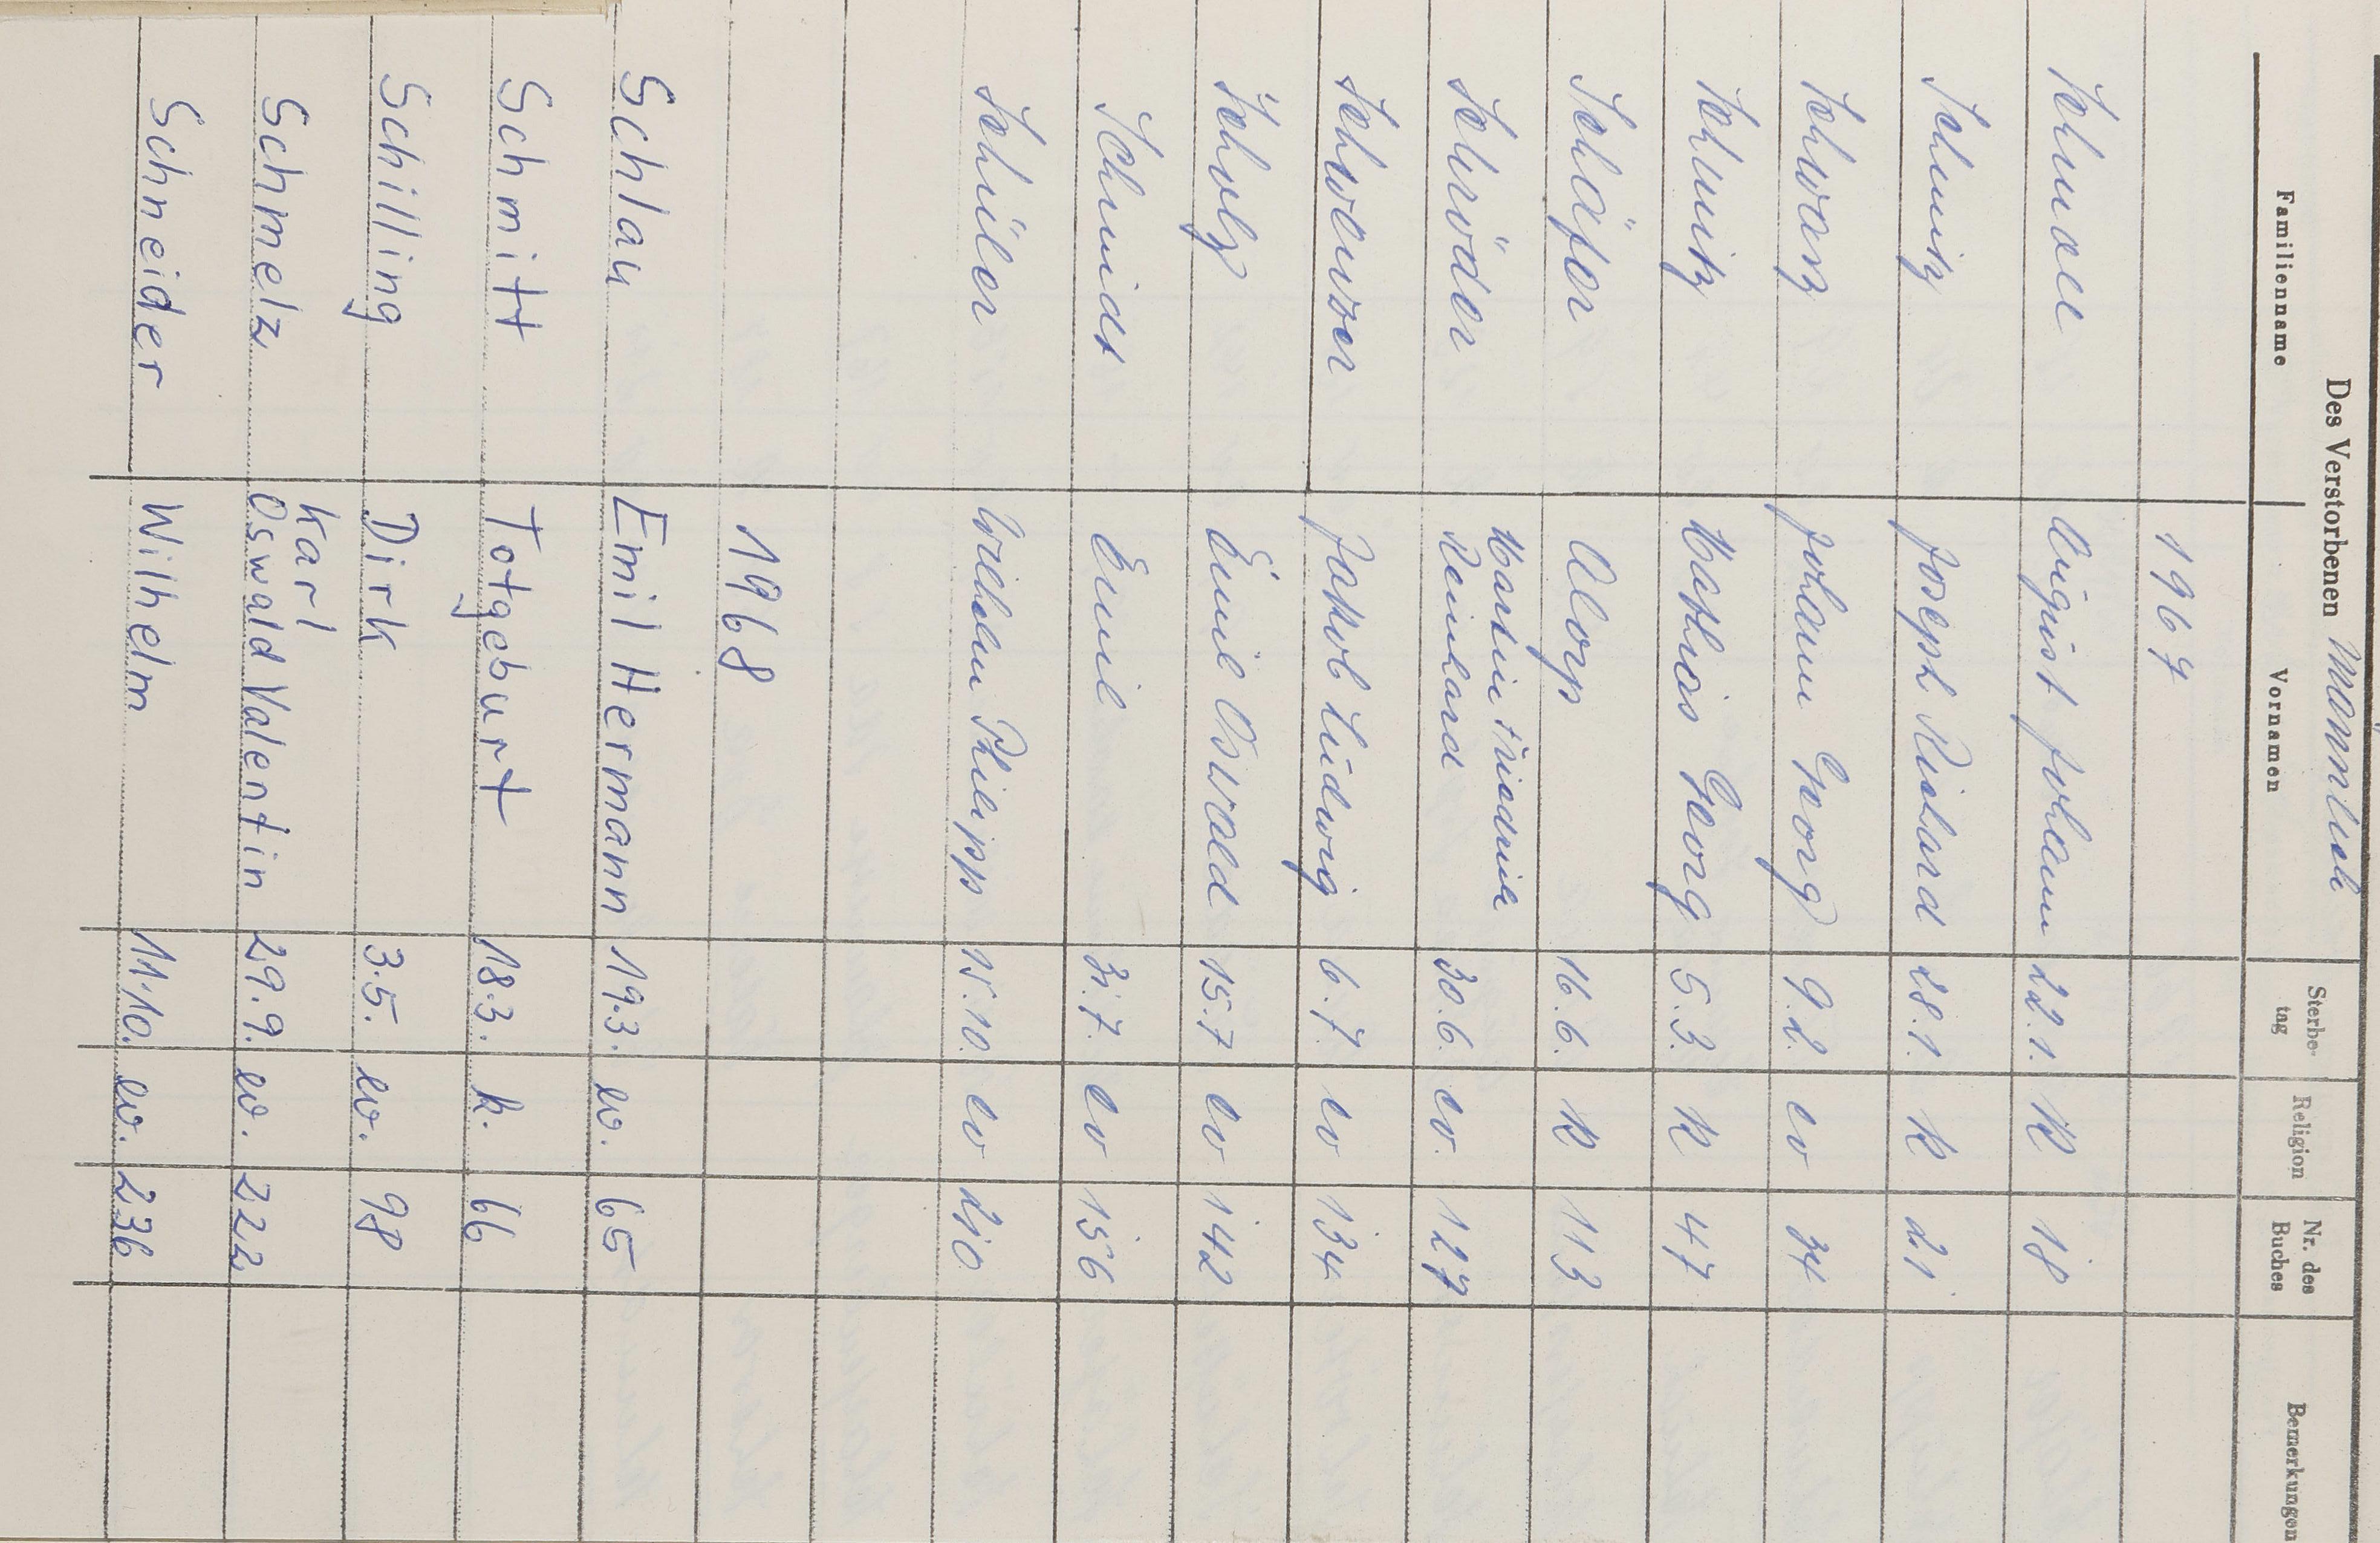 Des Verstorbenen Männlich
Familienname Vornamen Sterbe-tag Religion Nr. des Buches Bemerkungen
1967
August Johann 22.1. K 18
Schmitz Joseph Richard 28.1. K 21
Schwarz Johann Georg 9.2. ev 34
Schmitz Mathias Georg 5.3. K 47
Schäfer Aloys 16.6. K 113
Schröder Martin Friedrich Reinhard 30.6. ev. 127
Jakob Ludwig 6.7. ev 134
Scholz Emil Oswald 15.7 ev 142
Schmidt Emil 31.7. ev 156
Schüler Wilhelm Philipp 15.10. ev 210
1968
Schlau Emil Hermann 19.3. ev. 65
Schmitt Totgeburt 18.3. k. 66
Schilling Dirk 3.5. ev. 98
Schmelz Karl Oswald Valentin 29.9. ev. 222
Schneider Wilhelm 11.10. ev. 236